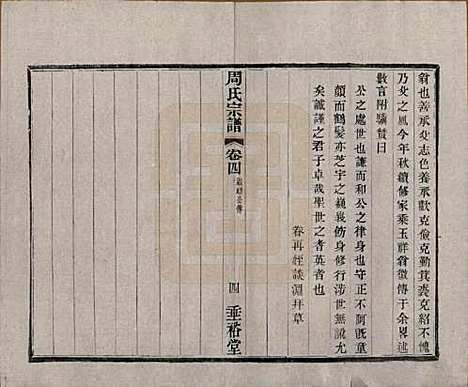 翁也善承父志色養承歡克儉克勤箕裘克紹不愧
乃父之風今年秋續修家乘玉祥翁徵傳于余畧述
數言附驥贊曰
公之處世也謙而和公之律身也守正不阿既童
顏而鶴髮亦芝宇之巍峩飭身修行涉世無訛允
矣誠謹之君子卓哉聖世之耆英者也
眷再姪談淵拜草
周氏宗譜
卷四
四
垂裕堂